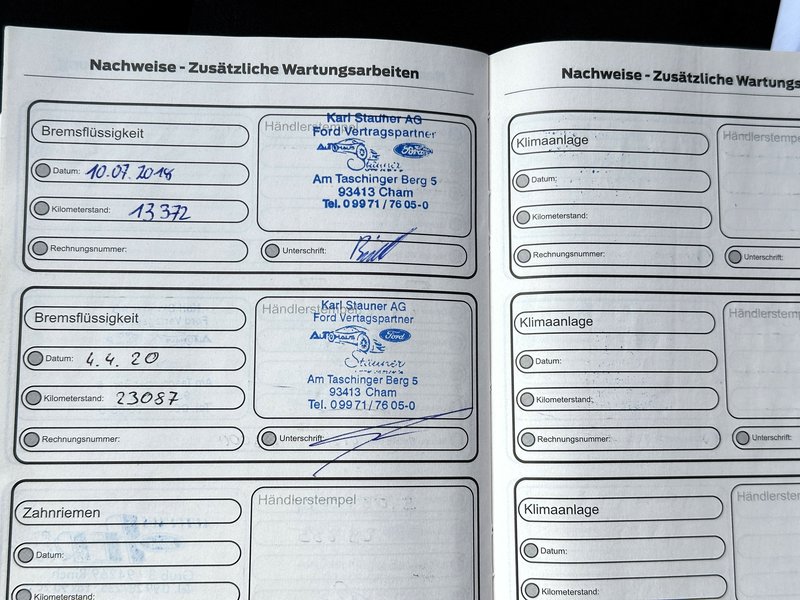 Nachweise - Zusätzliche Wartungsarbeiten
Bremsflüssigkeit
Datum: 10.07.2018
Kilometerstand: 13372
Rechnungsnummer:
Händlerstempel
Karl Stauner AG
Ford Vertragspartner
AUTOHAUS Ford
Stauner
Am Taschinger Berg 5
93413 Cham
Tel. 0 99 71 / 76 05-0
Unterschrift:
Bremsflüssigkeit
Datum: 4.4.20
Kilometerstand: 23087
Rechnungsnummer:
Händlerstempel
Karl Stauner AG
Ford Vertagspartner
AUTOHAUS Ford
Stauner
Am Taschinger Berg 5
93413 Cham
Tel. 0 99 71 / 76 05-0
Unterschrift:
Zahnriemen
Datum:
Kilometerstand:
Händlerstempel
Nachweise - Zusätzliche Wartungs
Klimaanlage
Datum:
Kilometerstand:
Rechnungsnummer:
Händlerstempe
Unterschrift:
Klimaanlage
Datum:
Kilometerstand:
Rechnungsnummer:
Händlerstemp
Unterschrift:
Klimaanlage
Datum:
Kilometerstand:
Händlerstem